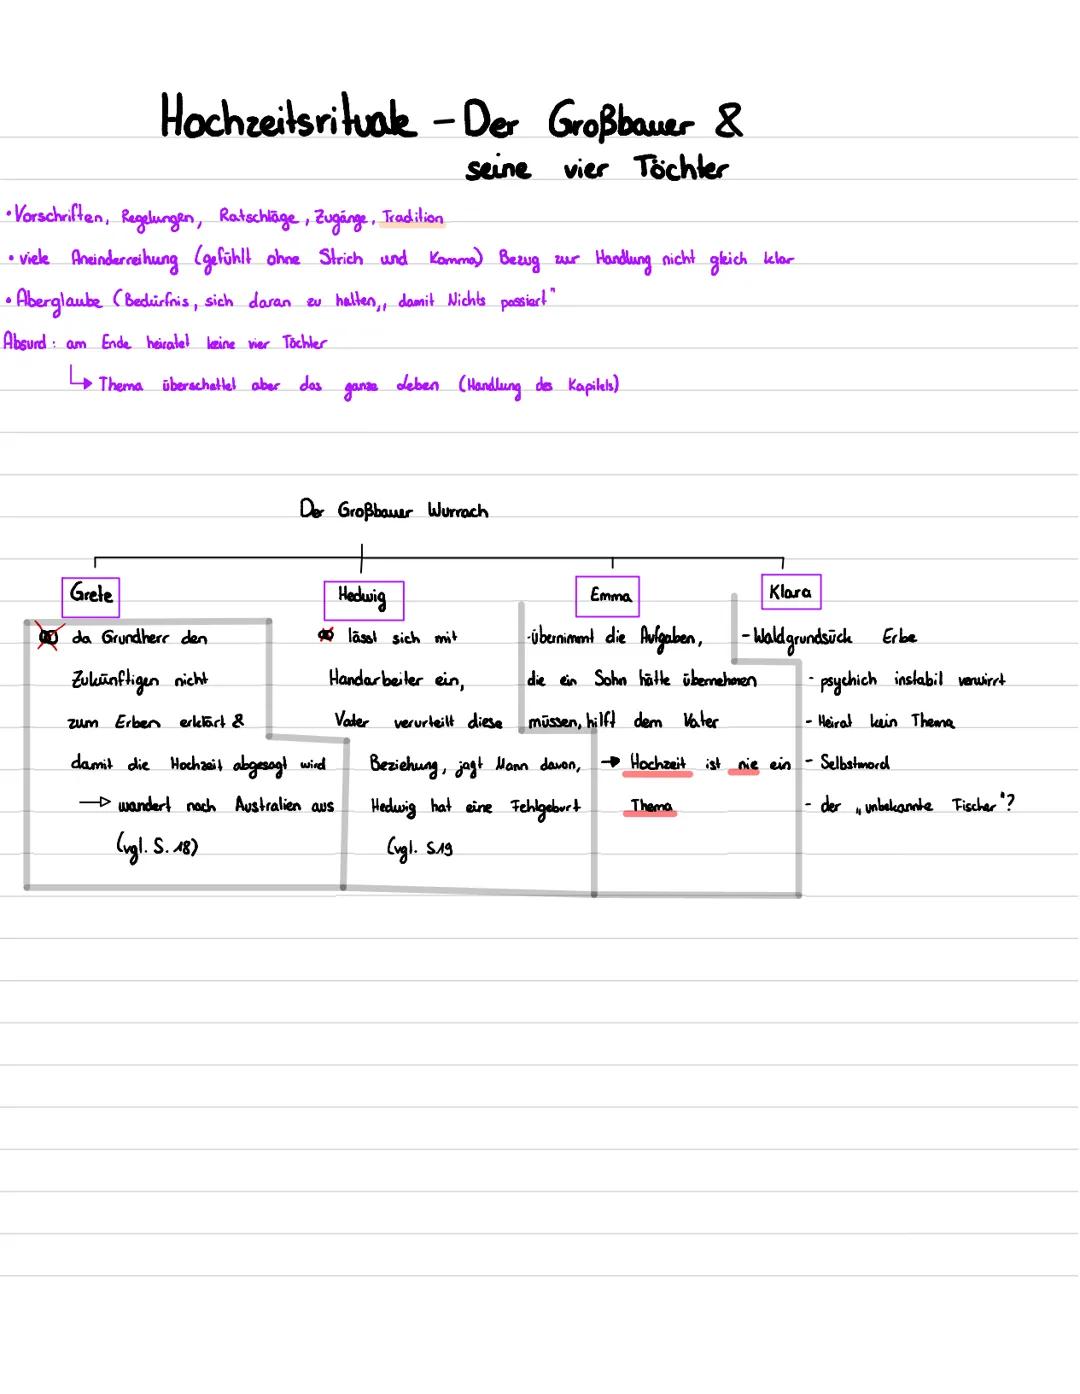 Hochzeitsrituale – Der Großbauer &
seine vier Töchter
• Vorschriften, Regelungen, Ratschläge, Zugänge, Tradition
• viele Aneinderreihung (gefühlt ohne Strich und Komma) Bezug zur Handlung nicht gleich klar
• Aberglaube (Bedürfnis, sich daran zu halten,, damit Nichts passiert"
Absurd: am Ende heiratet keine vier Töchter
↳ Thema überschattet aber das ganze Leben (Handlung des Kapitels)
Der Großbauer Wurrach
Grete
da Grundherr den
Zukünftigen nicht
zum Erben erklärt &
damit die Hochzeit abgesagt wird
→ wandert nach Australien aus
(vgl. S. 18)
Hedwig
lässt sich mit
Handarbeiter ein,
Vater verurteilt diese
Beziehung, jagt Mann davon,
Hedwig hat eine Fehlgeburt
(vgl. S19
Emma
-übernimmt die Aufgaben,
die ein Sohn hätte übernehmen
müssen, hilft dem Vater
→ Hochzeit ist nie ein
Thema
Klara
- Waldgrundsück Erbe
- psychich instabil verwirrt
- Heirat kein Thema
- Selbstmord
- der „unbekannte Fischer"?